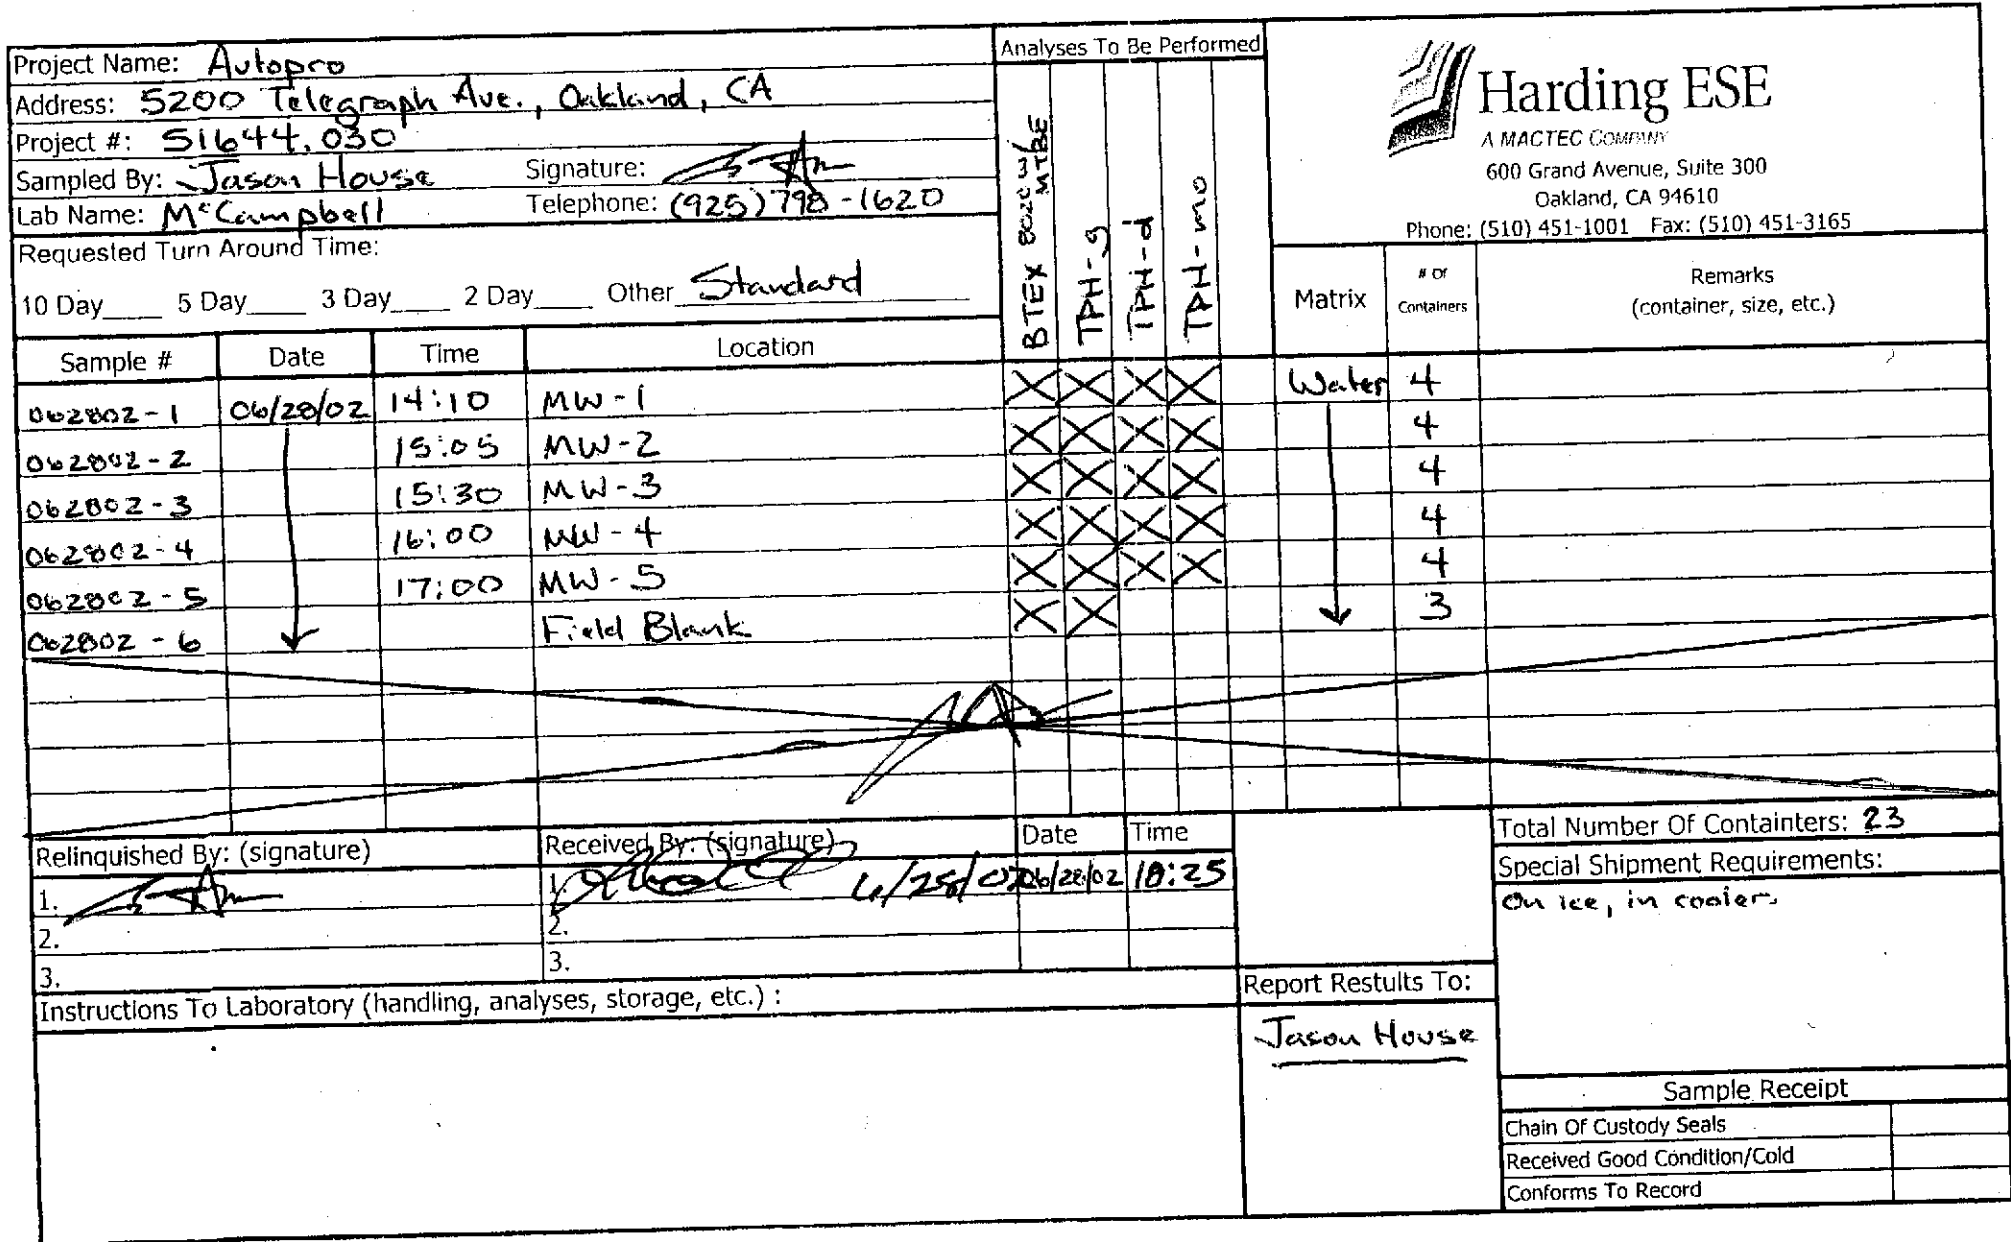 Project Name: Autopro
Address: 5200 Telegraph Ave., Oakland, CA
Project #: 51644.030
Sampled By: Jason House Signature:
Lab Name: McCampbell Telephone: (925) 798-1620
Requested Turn Around Time:
10 Day____ 5 Day____ 3 Day____ 2 Day____ Other Standard
Analyses To Be Performed
BTEX 8020 w/ MTBE
TPH-g
TPH-d
TPH-mo
Harding ESE
A MACTEC COMPANY
600 Grand Avenue, Suite 300
Oakland, CA 94610
Phone: (510) 451-1001 Fax: (510) 451-3165
Sample # Date Time Location Matrix # Of Containers Remarks (container, size, etc.)
062802-1 06/28/02 14:10 MW-1 X X X X Water 4
062802-2 15:05 MW-2 X X X X 4
062802-3 15:30 MW-3 X X X X 4
062802-4 16:00 MW-4 X X X X 4
062802-5 17:00 MW-5 X X X X 4
062802-6 Field Blank X X 3
Relinquished By: (signature) Received By: (signature) Date Time
1. 1. 6/28/02 06/28/02 18:25
2. 2.
3. 3.
Total Number Of Containters: 23
Special Shipment Requirements:
On ice, in cooler.
Instructions To Laboratory (handling, analyses, storage, etc.) :
Report Restults To:
Jason House
Sample Receipt
Chain Of Custody Seals
Received Good Condition/Cold
Conforms To Record